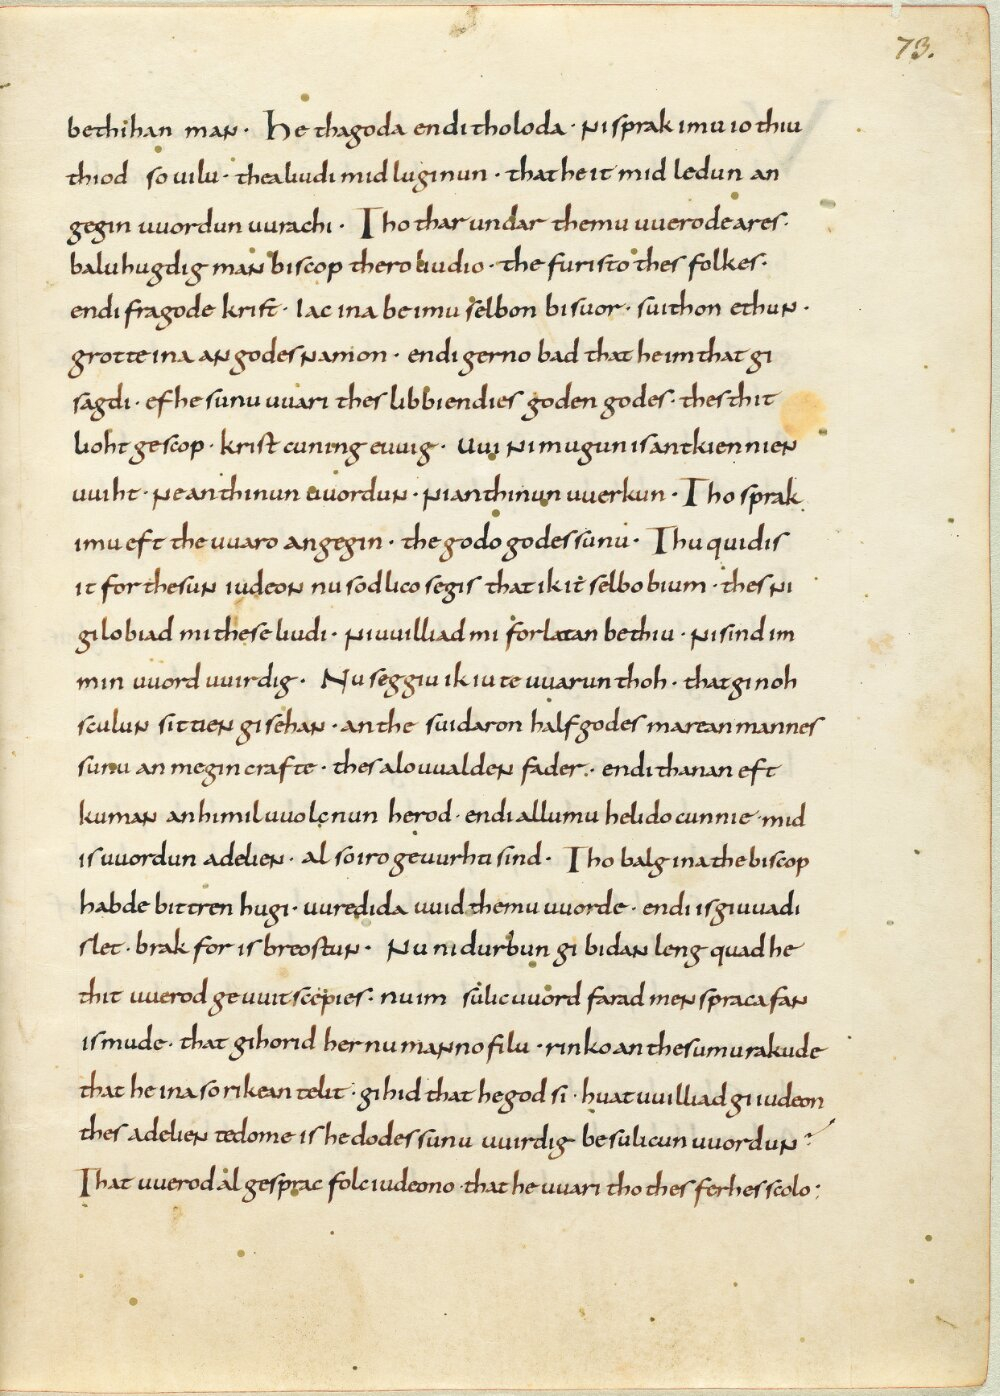 73.
bethihan man· He thagoda endi tholoda· ni sprak imu io thiu
thiod so uilu· thea liudi mid luginun· that he it mid ledun an
gegin uuordun uurachi· Tho thar undar themu uuerode ares·
baluhugdig man biscop thero liudio· the furisto thes folkes·
endi fragode krist· Iac ina be imu selbon bisuor· suithon ethun·
grotte ina an godes namon· endi gerno bad that he im that gi
sagdi· ef he sunu uuari thes libbiendies goden godes· thes thit
lioht gescop· krist cuning euuig· Uui ni mugun is antkiennien
uuiht· ne an thinun uuordun· ni an thinun uuerkun· Tho sprak
imu eft the uuaro angegin· the godo godes sunu· Thu quidis
it for thesun iudeon nu sodlico segis that ik it selbo bium· thes ni
gilobiad mi these liudi· ni uuilliad mi forlatan bethiu· ni sind im
min uuord uuirdig· Nu seggiu ik iu te uuarun thoh· that gi noh
sculun sittien gisehan· an the suidaron half godes marean mannes
sunu an megincrafte· thes alouualden fader· endi thanan eft
kuman an himiluuolcnun herod· endi allumu helido cunnie mid
is uuordun adelien· al so iro geuurhti sind· Tho balg ina the biscop
habde bittren hugi· uuredida uuid themu uuorde· endi is giuuadi
slet· brak for is breostun· Nu ni durbun gi bidan leng quad he
thit uuerod geuuitscepies· nu im sulic uuord farad men spraca fan
is mude· that gihorid her nu manno filu· rinko an thesumu rakude
that he ina so rikean telit· gihid that he god si· huat uuilliad gi iudeon
thes adelien te dome is he dodes sunu uuirdig be sulicun uuordun?
That uuerod al gesprac folc iudeono· that he uuari tho thes ferhes scolo: